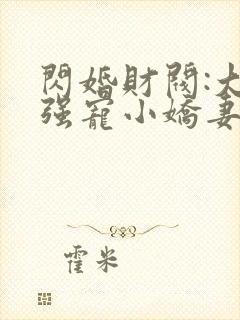 閃婚財閥:大
强寵小嬌妻
霍米